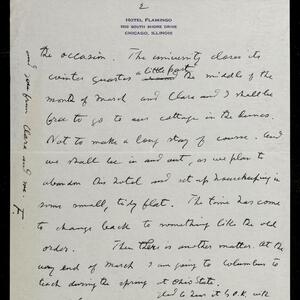 2
HOTEL FLAMINGO
5520 SOUTH SHORE DRIVE
CHICAGO, ILLINOIS
the occasion. The university closes its
winter quarter a little past the middle of the
month of March and Clara and I shall be
free to go to our cottage in the dunes.
Not to make a long stay of course. And
we shall be in and out, as we plan to
abandon this hotel and set up housekeeping in
some small, tidy flat. The time has come
to change back to something like the old
order. Then there is another matter. At the
very end of March I am going to Columbus to
teach during the spring at Ohio State.
glad to hear it is O.K. with
and you from Clara and me.